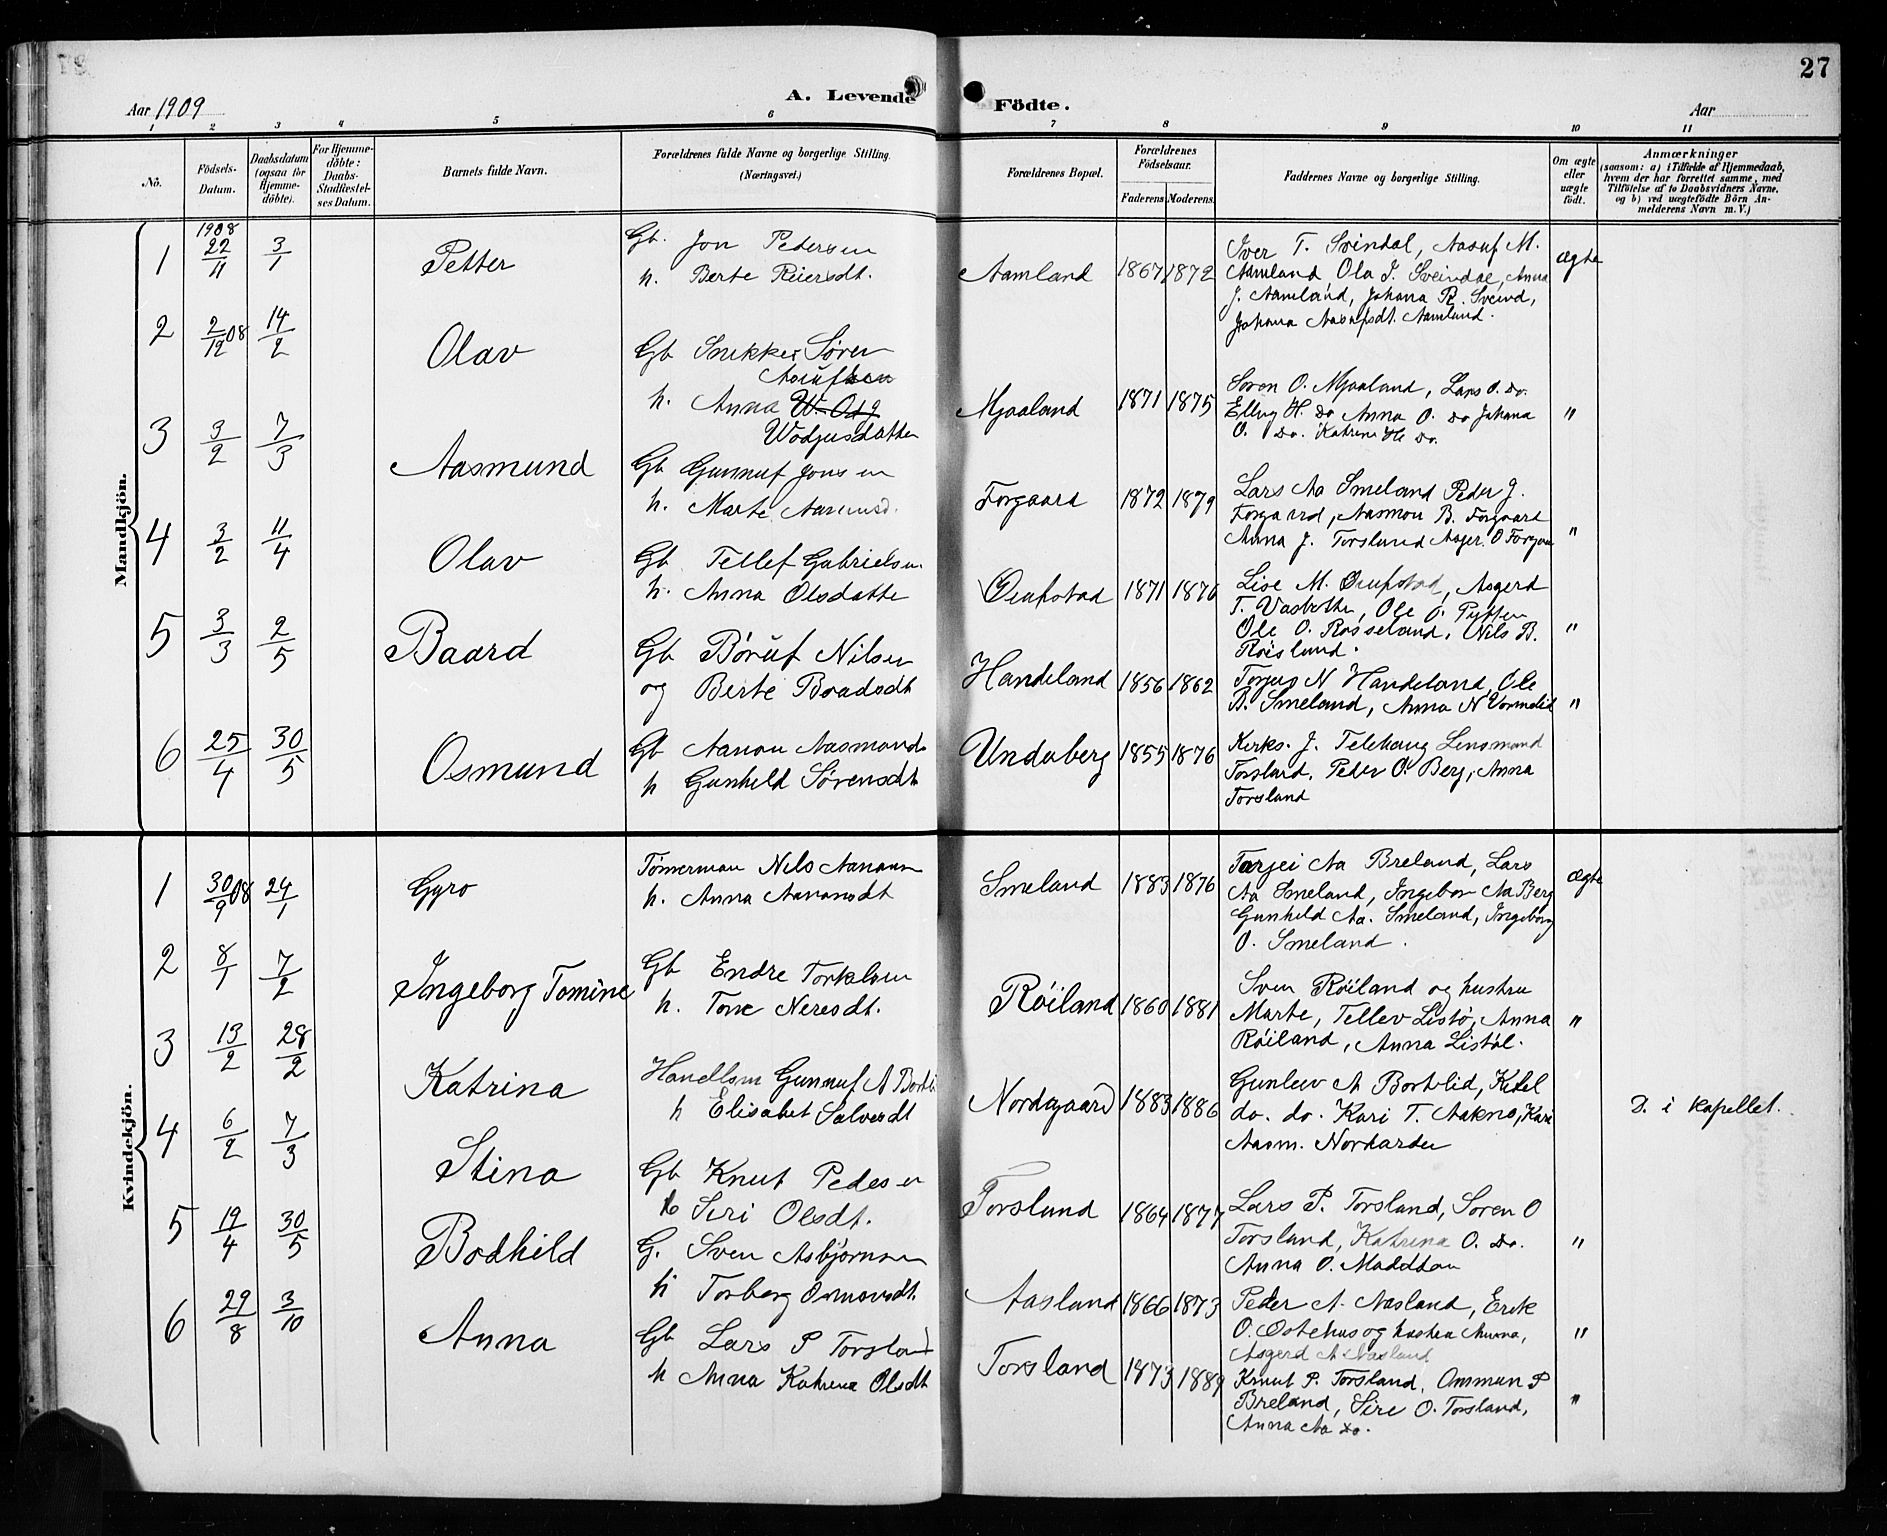 27
Aar 1909
A. Levende Födte.
Aar
1 2 3 4 5 6 7 8 9 10 11
No.
Födsels-Datum.
Daabsdatum (ogsaa for Hjemme-döbte).
For Hjemme-döbte: Daabs-Stadfæstel-ses Datum.
Barnets fulde Navn.
Forældrenes fulde Navne og borgerlige Stilling.
(Næringsvei.)
Forældrenes Bopæl.
Forældrenes Födselsaar.
Faderens Moderens
Faddernes Navne og borgerlige Stilling.
Om ægte eller uægte födt.
Anmærkninger
(saasom: a) i Tilfælde af Hjemmedaab,
hvem der har forrettet samme, med
Tilföielse af to Daabsvidners Navne,
og b) ved uægtefödte Börn An-
melderens Navn m. V.)
Mandkjön.
1 1908 22/11 3/1 Petter
Gb. Jon Pedersen
h. Berte Reiersdt.
Aamland 1867 1872
Iver T. Svindal, Aasuf M.
Aamland Ola J. Sveindal, Anna
J. Aamland, Johana R. Sveind,
Johana Aasufsdt. Aamland.
ægte
2 2/12 08 14/2 Olav
Gb Snikker Søren
Aasufsen
h. Anna W. Odj
Wodjusdatter
Mjaaland 1871 1875
Søren O. Mjaaland, Lars O. Do.
Ellug H. Do Anna O. Do Johana
O. Do. Katrine H Do.
"
3 3/2 7/3 Aasmund
Gb Gunnuf Jonsen
h. Marte Aasmusd.
Forgaard 1872 1879
Lars Aa Smeland Peder J.
Forgaard, Aasmon B. Forgaard
Anna J. Torsland Asger. O Forgaa
"
4 3/2 11/4 Olav
Gb. Tellef Gabrielsen
h. Anna Olsdatte
Quifstad 1871 1876
Live M. Quifstad, Asgerd
T. Vasbotten, Ole O. Tytten
Ole O. Rosseland, Nils B.
Røisland.
"
5 3/3 2/5 Baard
Gb Børuf Nilsen
og Berte Boadsdt
Handeland 1856 1862
Torjus N Handeland, Ole
B. Smeland, Anna N Vormelid
"
6 25/4 30/5 Osmund
Gb Aanon Aasmonds
h Gunhild Sørensdt
Undaberg 1855 1876
Kirks. J. Telehaug Lensmand
Torsland. Peder O. Berg, Anna
Torsland
Kvindekjön.
1 30/9 08 24/1 Gyro
Tømerman Nils Aanonsn
h. Anna Aanonsdt
Smeland 1883 1876
Tarjei Aa Breland, Lars
Aa Smeland, Ingebor Aa Berg
Gunhild Aa. Smeland, Ingeborg
O. Smeland.
ægte
2 8/1 7/2 Ingeborg Tomine
Gb Endre Torkelsen
h. Tone Neresdt.
Røiland 1860 1881
Sven Røiland og hustru
Marte, Tellev Listø, Anna
Røiland, Anna Listøl.
"
3 13/2 28/2 Katrina
Handlsm Gunnuf A Bortli
h Elisabet Salvesdt
Nordgaard 1883 1886
Gunlev A Bortelid, Ketel
do. do. Kari T. Aakno, Kari
Aasm. Norharder
D. i kapellet.
4 6/2 7/3 Stina
Gb Knut Pedesen
h Siri Olsdt.
Torsland 1864 1877
Lars P. Torsland, Søren O
Torsland, Katrina O. Do.
Anna O. Maddtan
"
5 19/4 30/5 Bodhild
G. Sven Asbjørnsen
h Torberg Osmundsdt.
Aasland 1866 1873
Peder A. Aasland, Erik
O. Østehus og hustru Anna,
Asgerd A Aasland
"
6 29/8 3/10 Anna
Gb Lars P Torsland
h Anna Katrine Olsdt
Torsland 1873 1889
Knut P. Torsland, Ommun P
Breland, Sire O. Torsland,
Anna Aa Do.
"